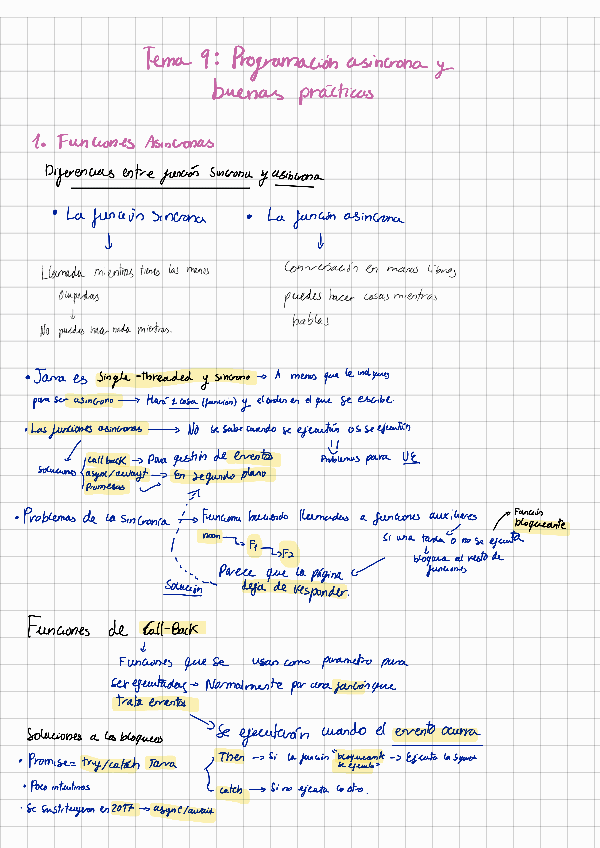 Tema 9: Programación asíncrona y
buenas prácticas
1. Funciones Asíncronas
Diferencias entre función síncrona y asíncrona
• La función síncrona • La función asíncrona
↓ ↓
Llamada mientras tienes las manos Conversación en manos libres
ocupadas puedes hacer cosas mientras
↓ hablas
No puedes hacer nada mientras.
• Java es single-threaded y síncrono → A menos que le indiques
para ser asíncrono → Hará 1 cosa (función) y el orden en el que se escribe.
• Las funciones asíncronas → No se sabe cuando se ejecutan o si se ejecutan
Soluciones callback → Para gestión de eventos Problemas para UE
async/await → En segundo plano
Promesas
• Problemas de la sincronía → Funciona haciendo llamadas a funciones auxiliares Función
bloqueante
main → F1 → F2 Si una tarda o no se ejecuta
bloquea al resto de
funciones
Parece que la página
Solución deja de responder.
Funciones de Call-Back
↓
Funciones que se usan como parametro para
ser ejecutadas → Normalmente por una función que
trata eventos
→ Se ejecutarán cuando el evento ocurra
Soluciones a los bloqueos
• Promise → try/catch Java Then → Si la función "bloqueante → Ejecuta la
se ejecuta"
• Poco intuitivos catch → Si no ejecuta lo otro.
• Se sustituyeron en 2017 → async/await